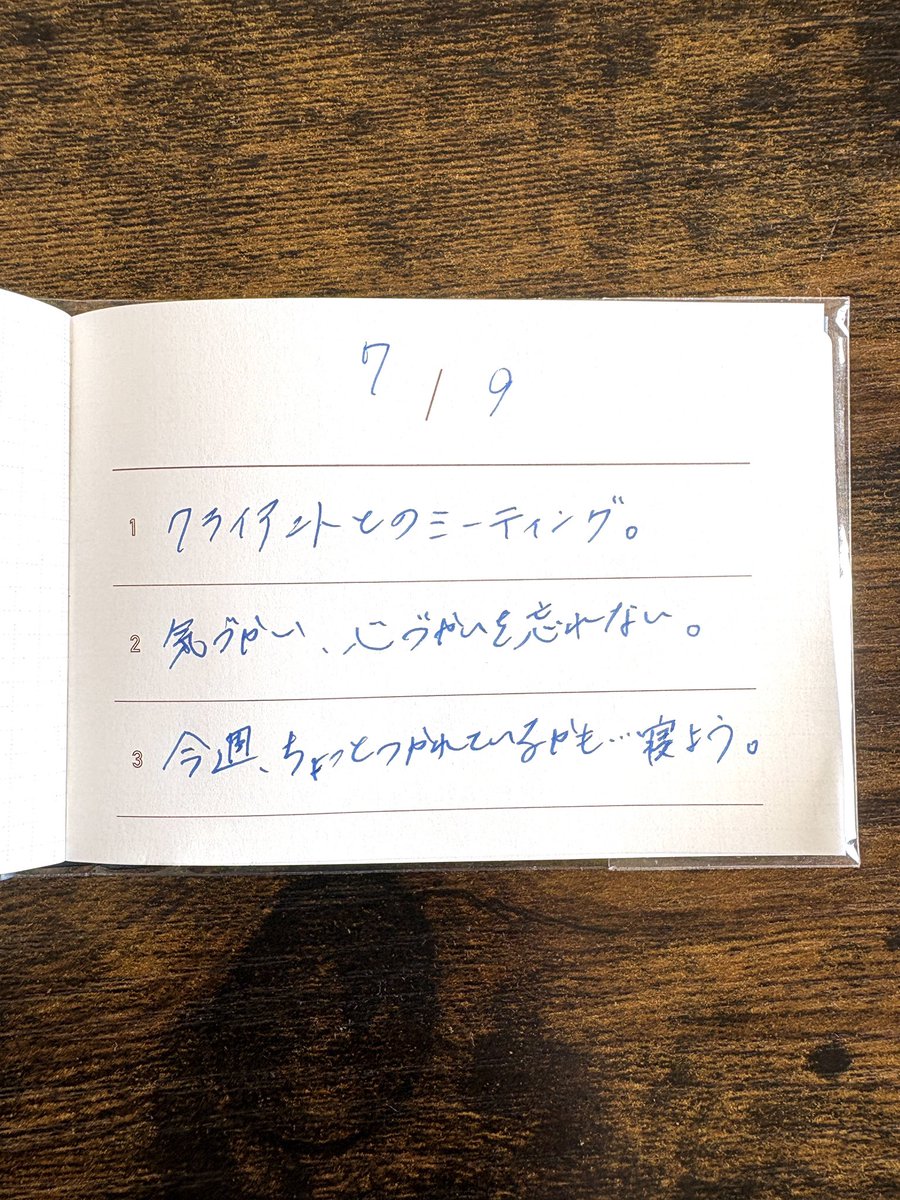 7 / 9
1 クライアントとのミーティング。
2 気づかい、心づかいを忘れない。
3 今週、ちょっとつかれているかも…寝よう。